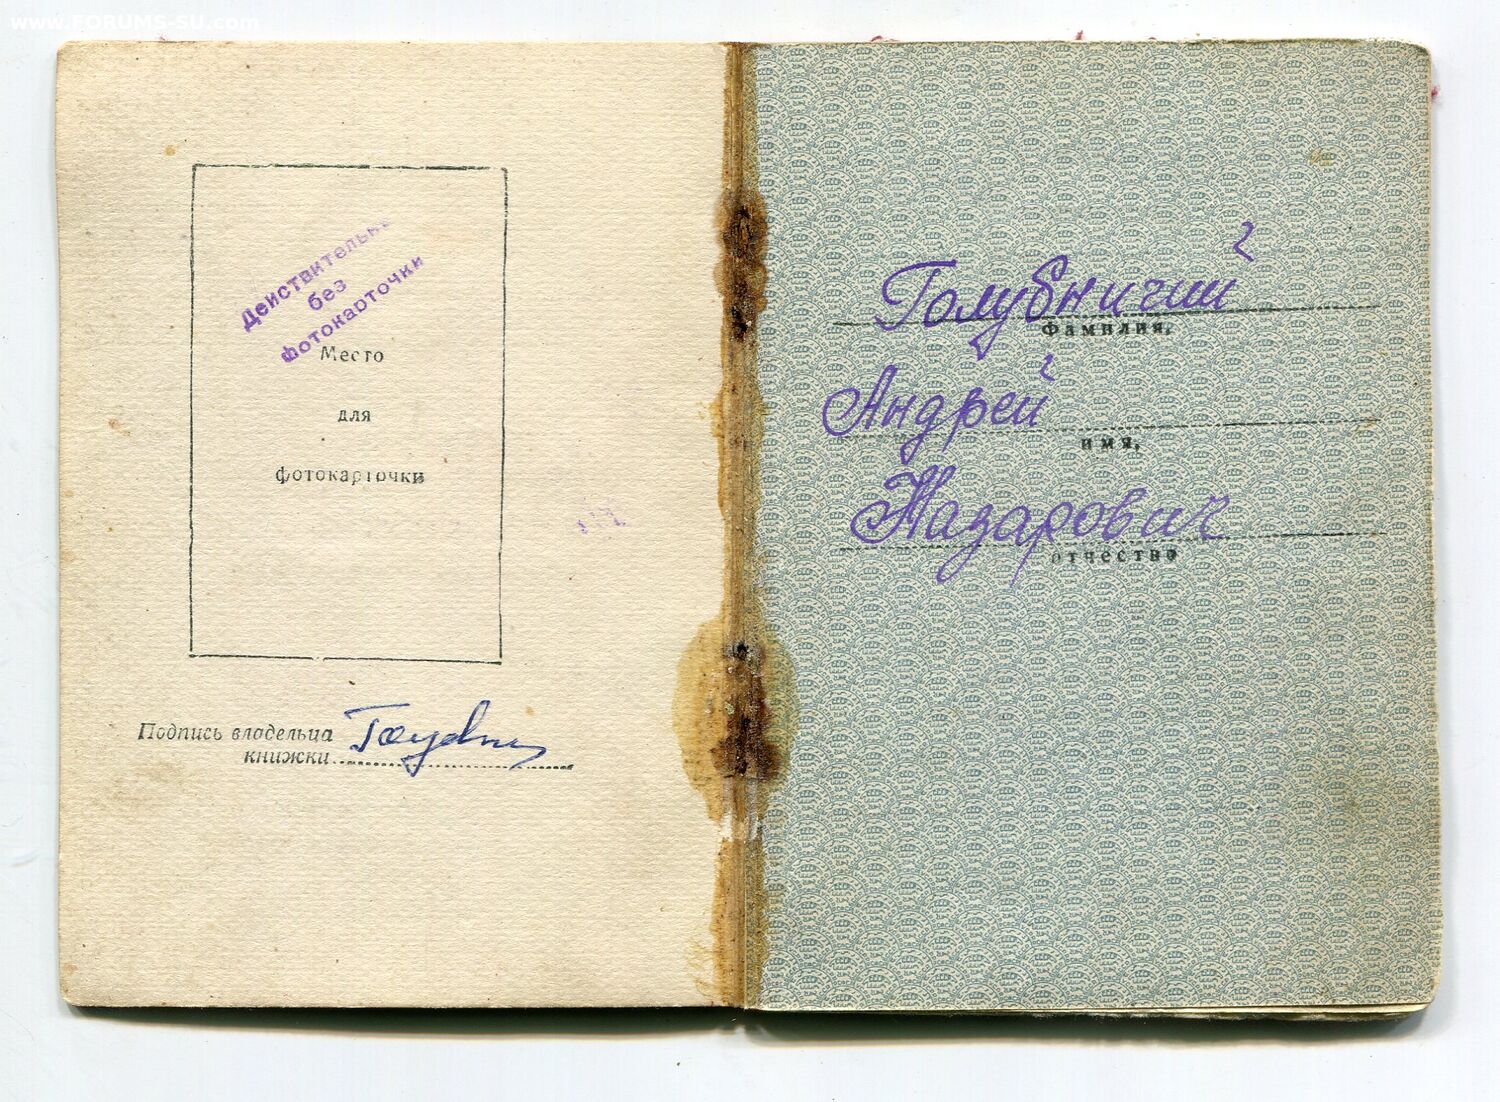 www.FORUMS-SU.com
Действительно
без
фотокарточки
Место
для
фотокарточки
Подпись владельца
книжки
Голубничий
фамилия,
Андрей
имя,
Назарович
отчество